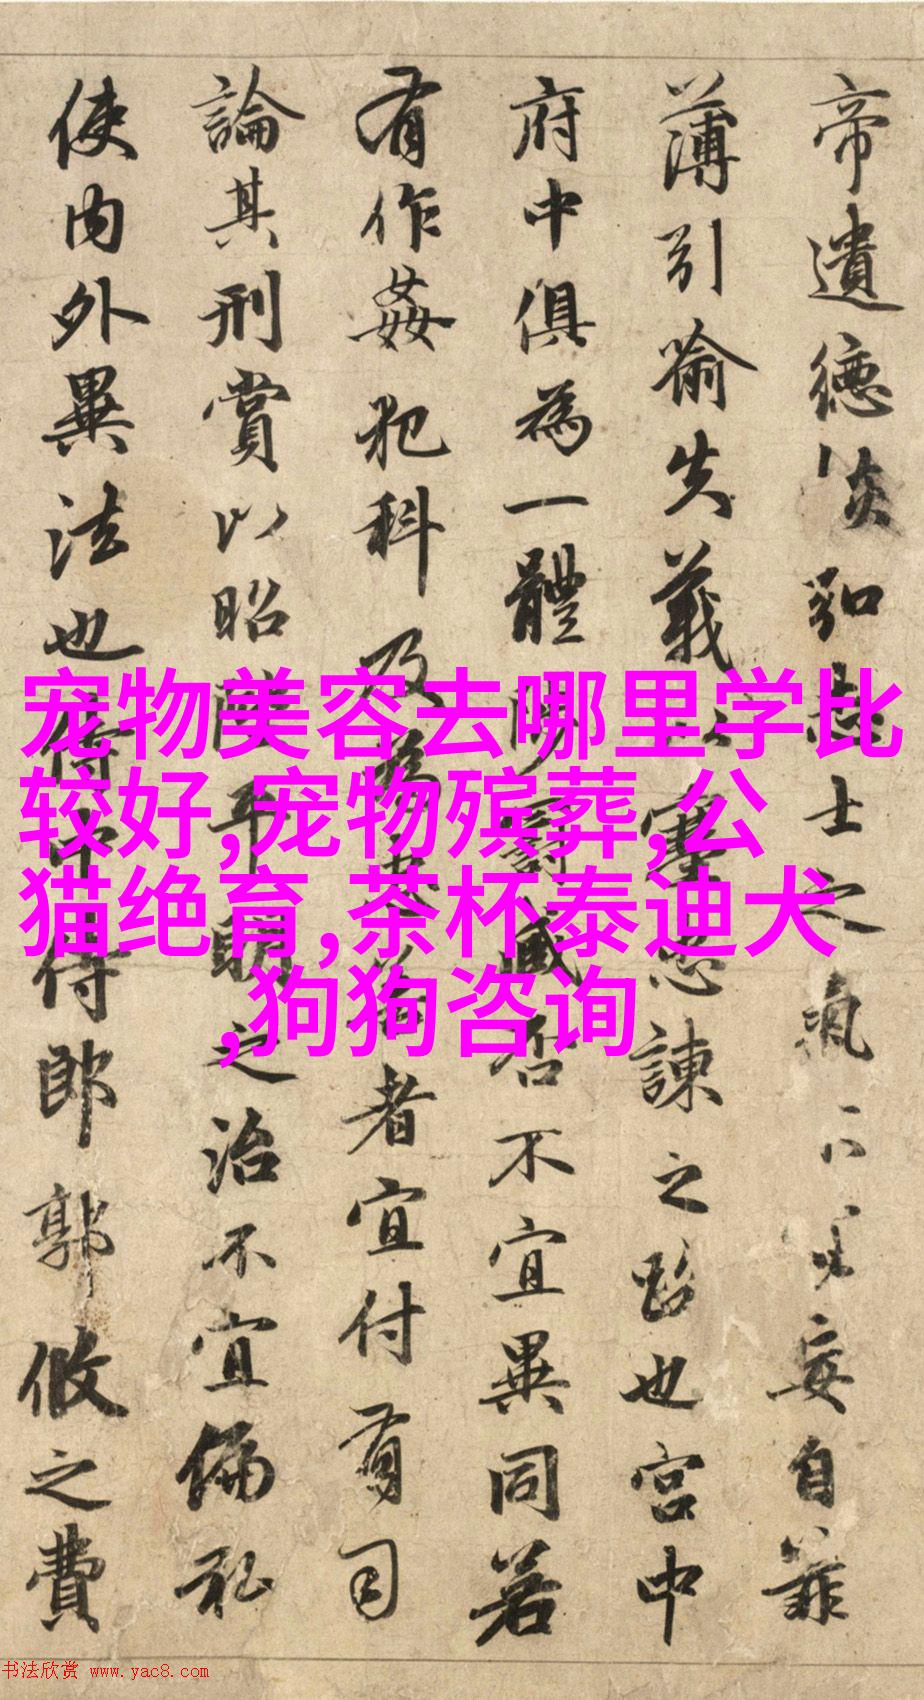 帝遺德恢弘志士之氣不宜妄自菲
薄引喻失義以塞忠諫之路也宮中
府中俱為一體陟罰臧否不宜異同若
有作姦犯科及為忠善者宜付有司
論其刑賞以昭陛平明之治不宜偏私
使內外異法也侍中侍郎郭攸之費
宠物美容去哪里学比
较好,宠物殡葬,公
猫绝育,茶杯泰迪犬
,狗狗咨询
书法欣赏 www.yac8.com